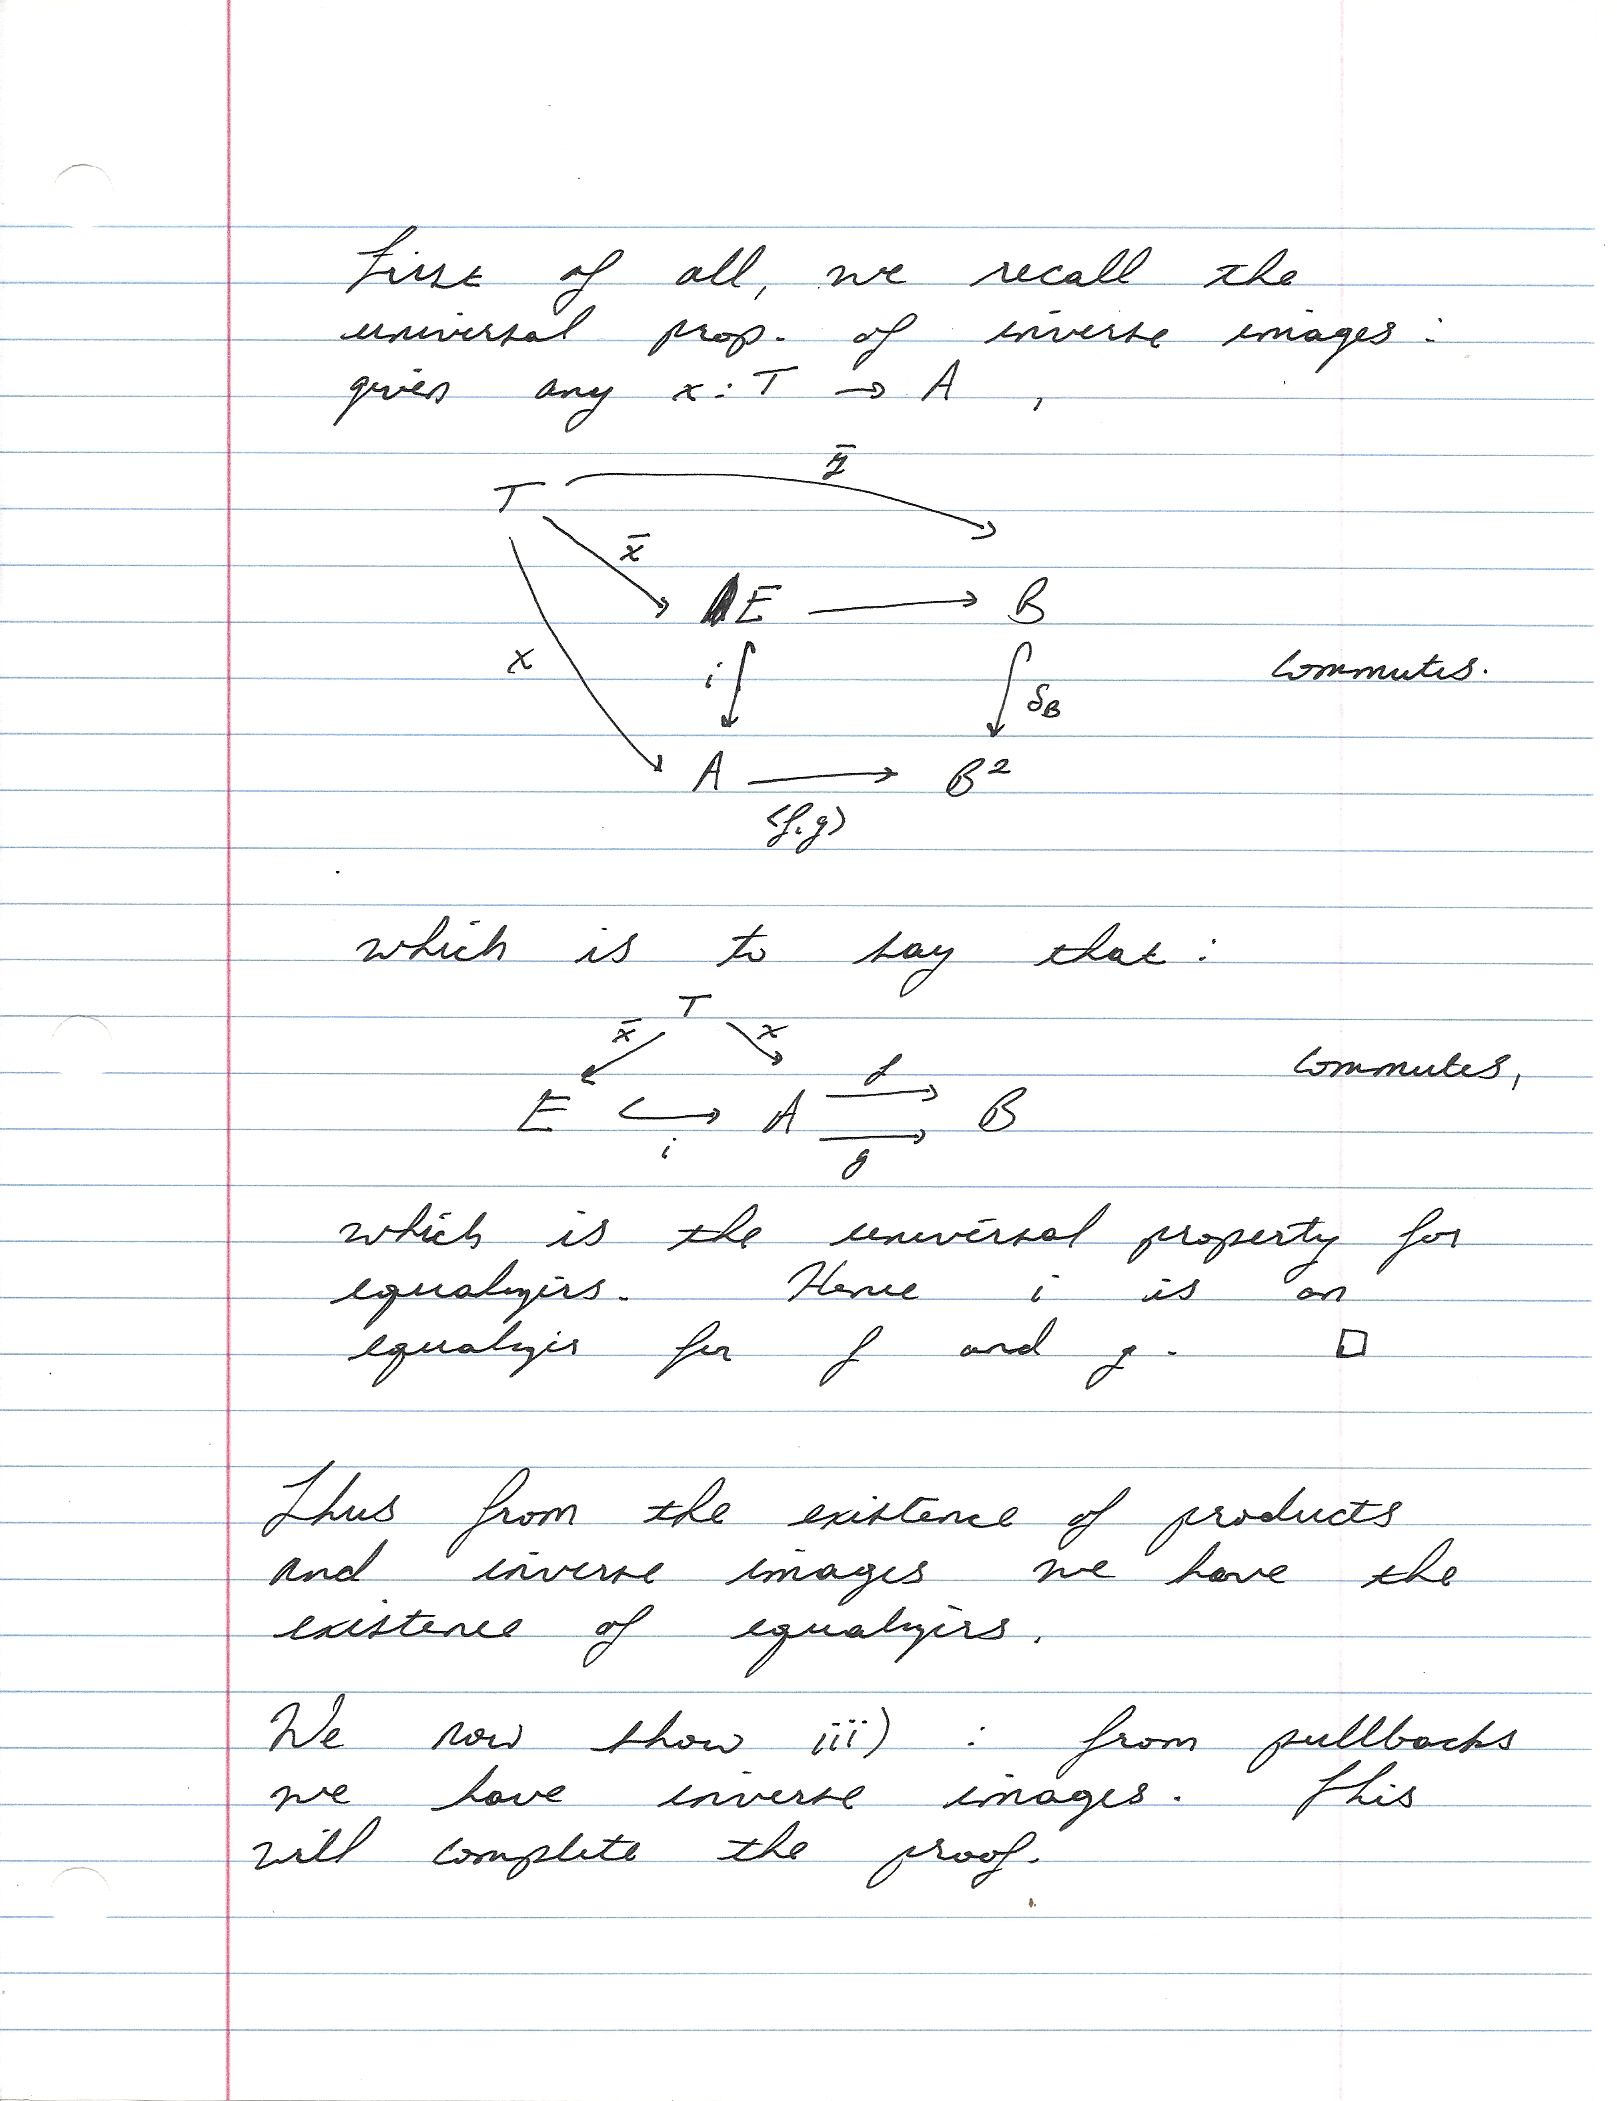 First of all, we recall the
universal prop. of inverse images:
given any x: T → A ,
T ȳ
x̄
E → B
x i δ_B commutes.
A → B²
⟨f,g⟩
which is to say that:
T
x̄ x
commutes,
E ↪ A ⇉ B
f
i g
which is the universal property for
equalyzers. Hence i is an
equalyzer for f and g. □
Thus from the existence of products
and inverse images we have the
existence of equalyzers.
We now show iii) : from pullbacks
we have inverse images. This
will complete the proof.